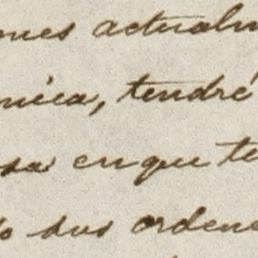 ones actualm
nica, tendré
sa en que te
o sus ordene